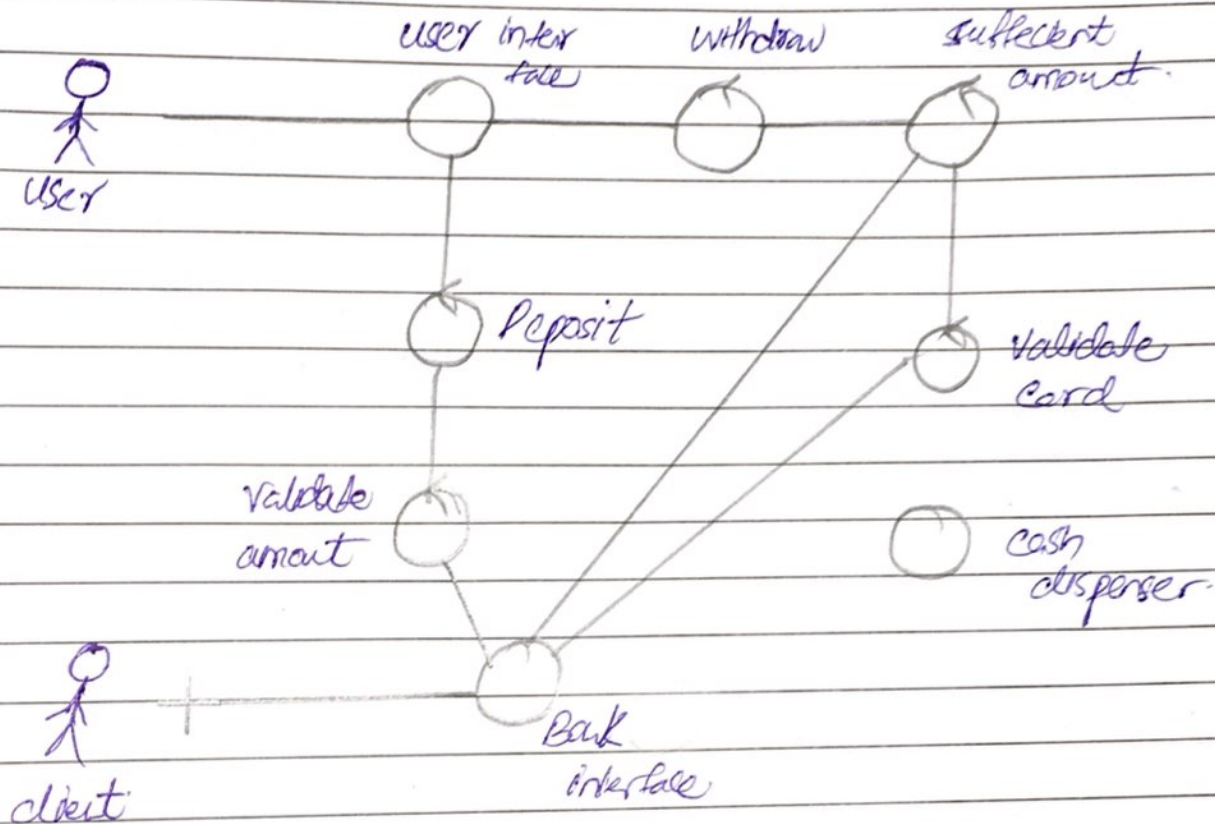 user inter
face
withdraw
suffecient
amount.
user
Deposit
validate
card
validate
amout
cash
dispenser.
Bank
interface
client